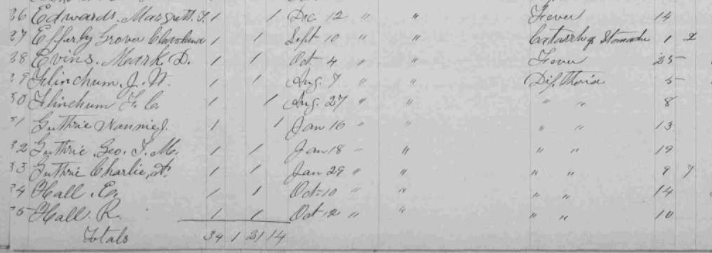 26 Edwards, Margrett. F. 1 1 Dec 12 " " Fever 14
27 Epparly Grover Cleveland 1 1 Sept 10 " " Catarrh of Stomach 1
28 Evins. Mark D. 1 1 Oct 4 " " Fever 25
29 Flinchum J. W. 1 1 Aug 7 " " Diptheria 5
30 Flinchum 1 1 Aug 27 " " " " 8
31 Guthrie 1 1 Jan 16 " " " " 13
32 Guthrie. Geo. T. M. 1 1 Jan 18 " " " " 19
33 Guthrie Charlie. 1 1 Jan 29 " " " " 9 7
34 Hall. 1 1 Oct 10 " " " " 14
35 Hall. R. 1 1 Oct 12 " " " " 10
Totals 34 1 21 14